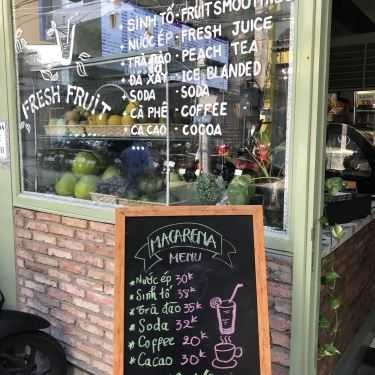 SINH TỐ - FRUIT SMOOTHIES
NƯỚC ÉP - FRESH JUICE
TRÀ ĐÀO - PEACH TEA
ĐÁ XAY - ICE BLANDED
SODA - SODA
CÀ PHÊ - COFFEE
CA CAO - COCOA
FRESH FRUIT
MACARENA
MENU
Nước ép 30K
Sinh tố 38K
Trà đào 35K
Soda 32K
Coffee 20K
Cacao 30K